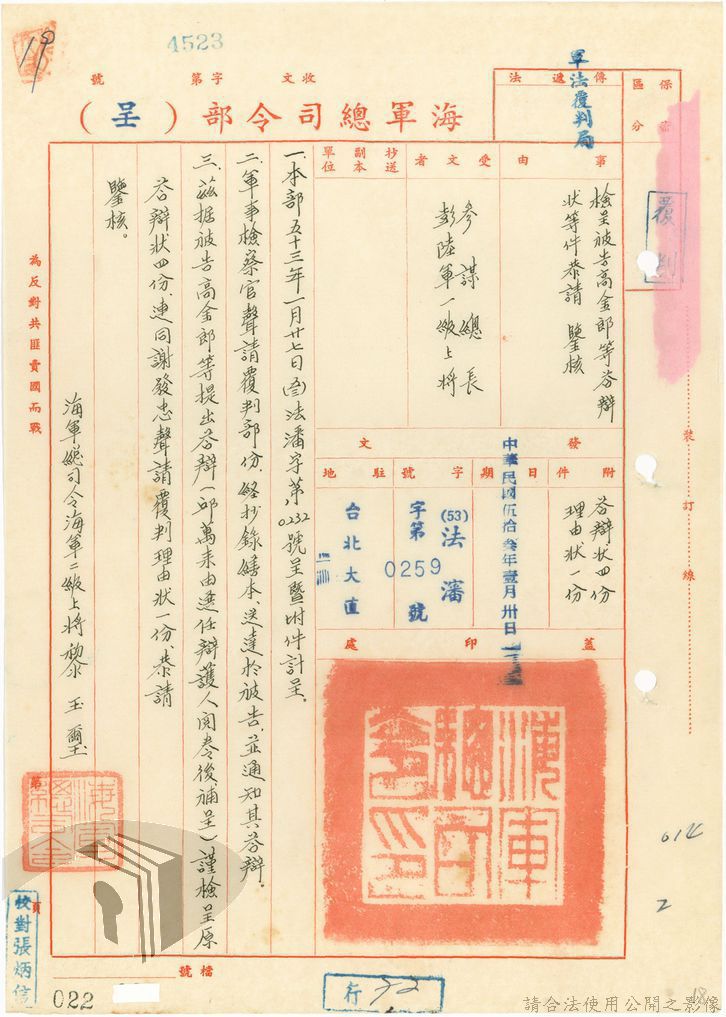 19
4523
收文 字第 號
海軍總司令部（呈）
軍法覆判局
傳遞法
保密區分
覆判
事由
檢呈被告高金郎等答辯
狀等件恭請 鑒核
受文者
參謀總長
彭陸軍一級上將
抄送副本單位
發文
附件
答辯狀四份
理由狀一份
日期
中華民國伍拾叁年壹月卅日
字號
(53)法瀋
字第
0259
號
駐地
台北大直
蓋印處
海軍總司令部印
一、本部五十三年一月廿七日(53)法瀋字第0232號呈暨附件計呈。
二、軍事檢察官聲請覆判部份，經抄錄繕本、送達於被告，並通知其答辯。
三、茲据被告高金郎等提出答辯（邱萬來由選任辯護人閱卷後補呈）謹檢呈原
答辯狀四份，連同謝發忠聲請覆判理由狀一份，恭請
鑒核。
海軍總司令海軍二級上將黎玉璽
為反對共匪賣國而戰
裝訂線
第
頁
校對張炳信
檔號
022
行
014
2
18
請合法使用公開之影像